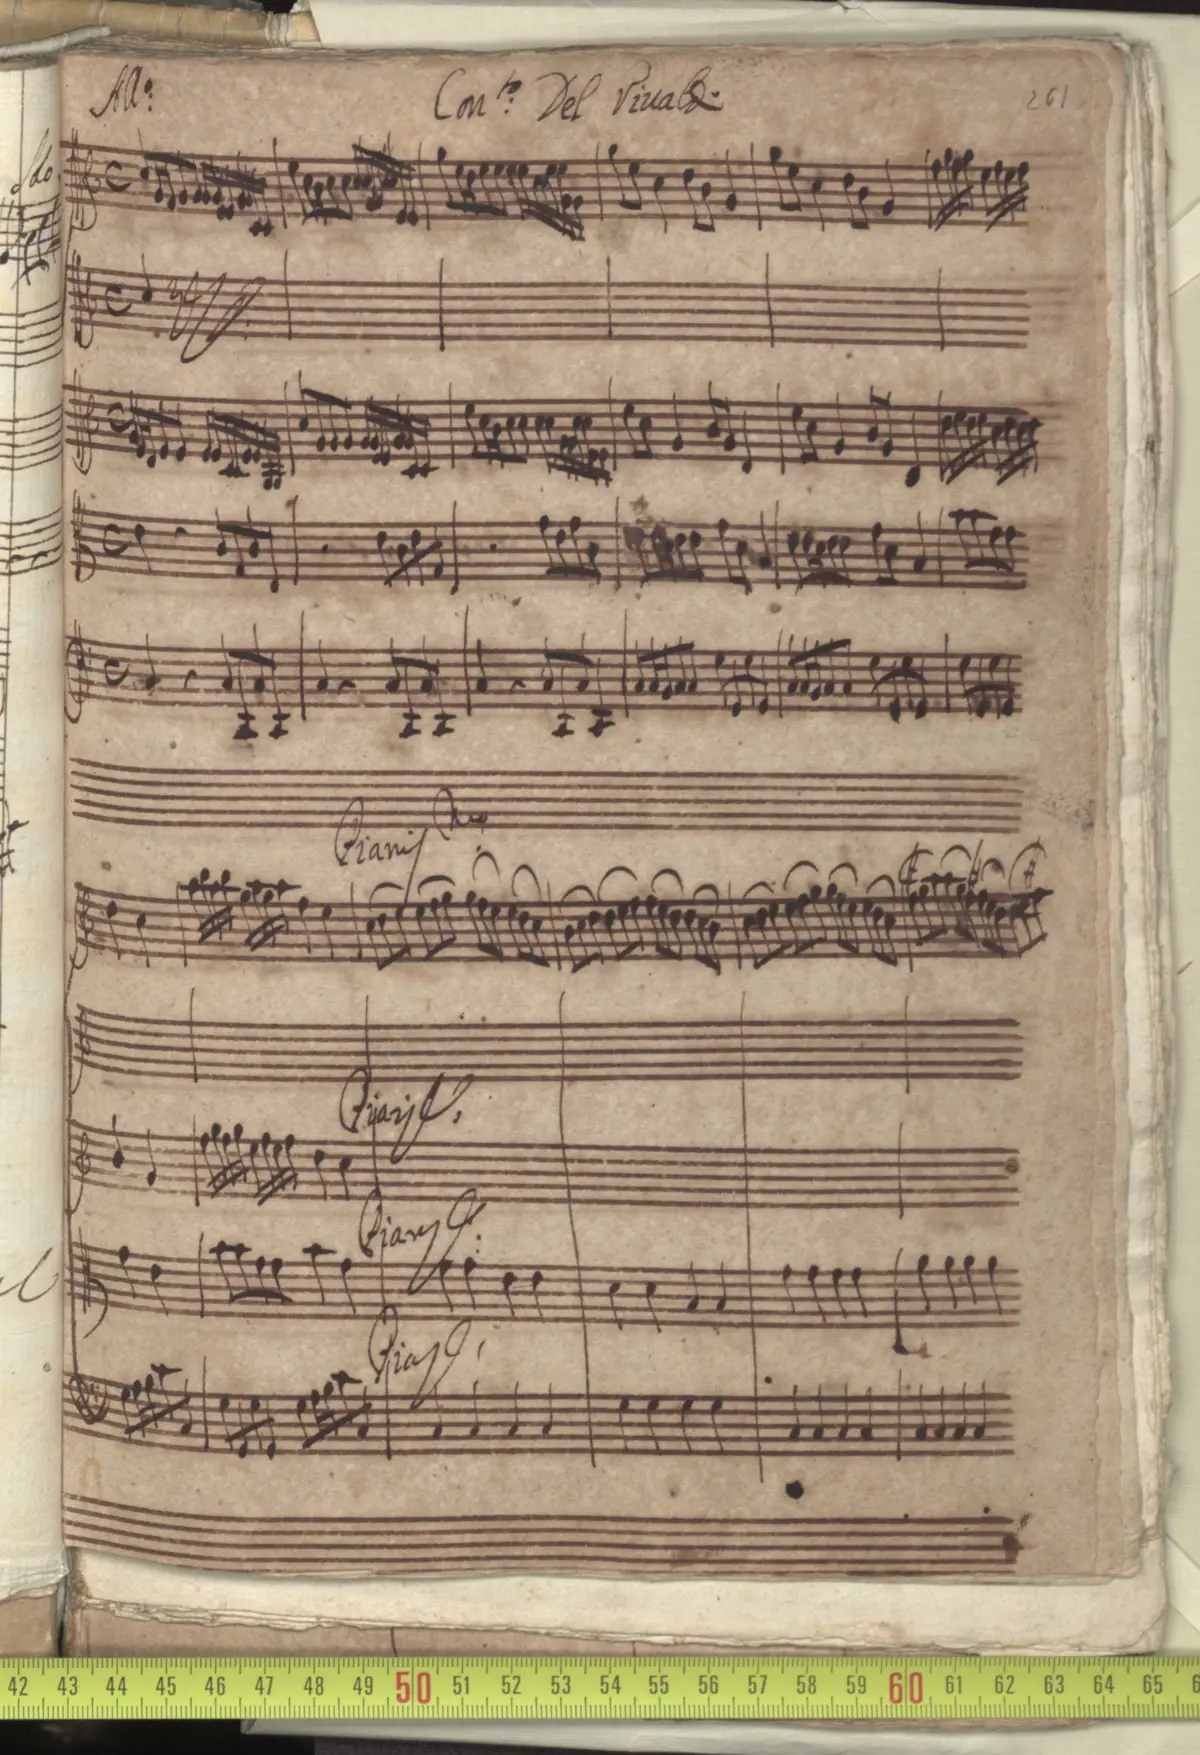 All.º Con.to Del Viualdi 261
Pianiss.mo
Pianiss.
Pianiss.
Pianiss.
42 43 44 45 46 47 48 49 50 51 52 53 54 55 56 57 58 59 60 61 62 63 64 65 6